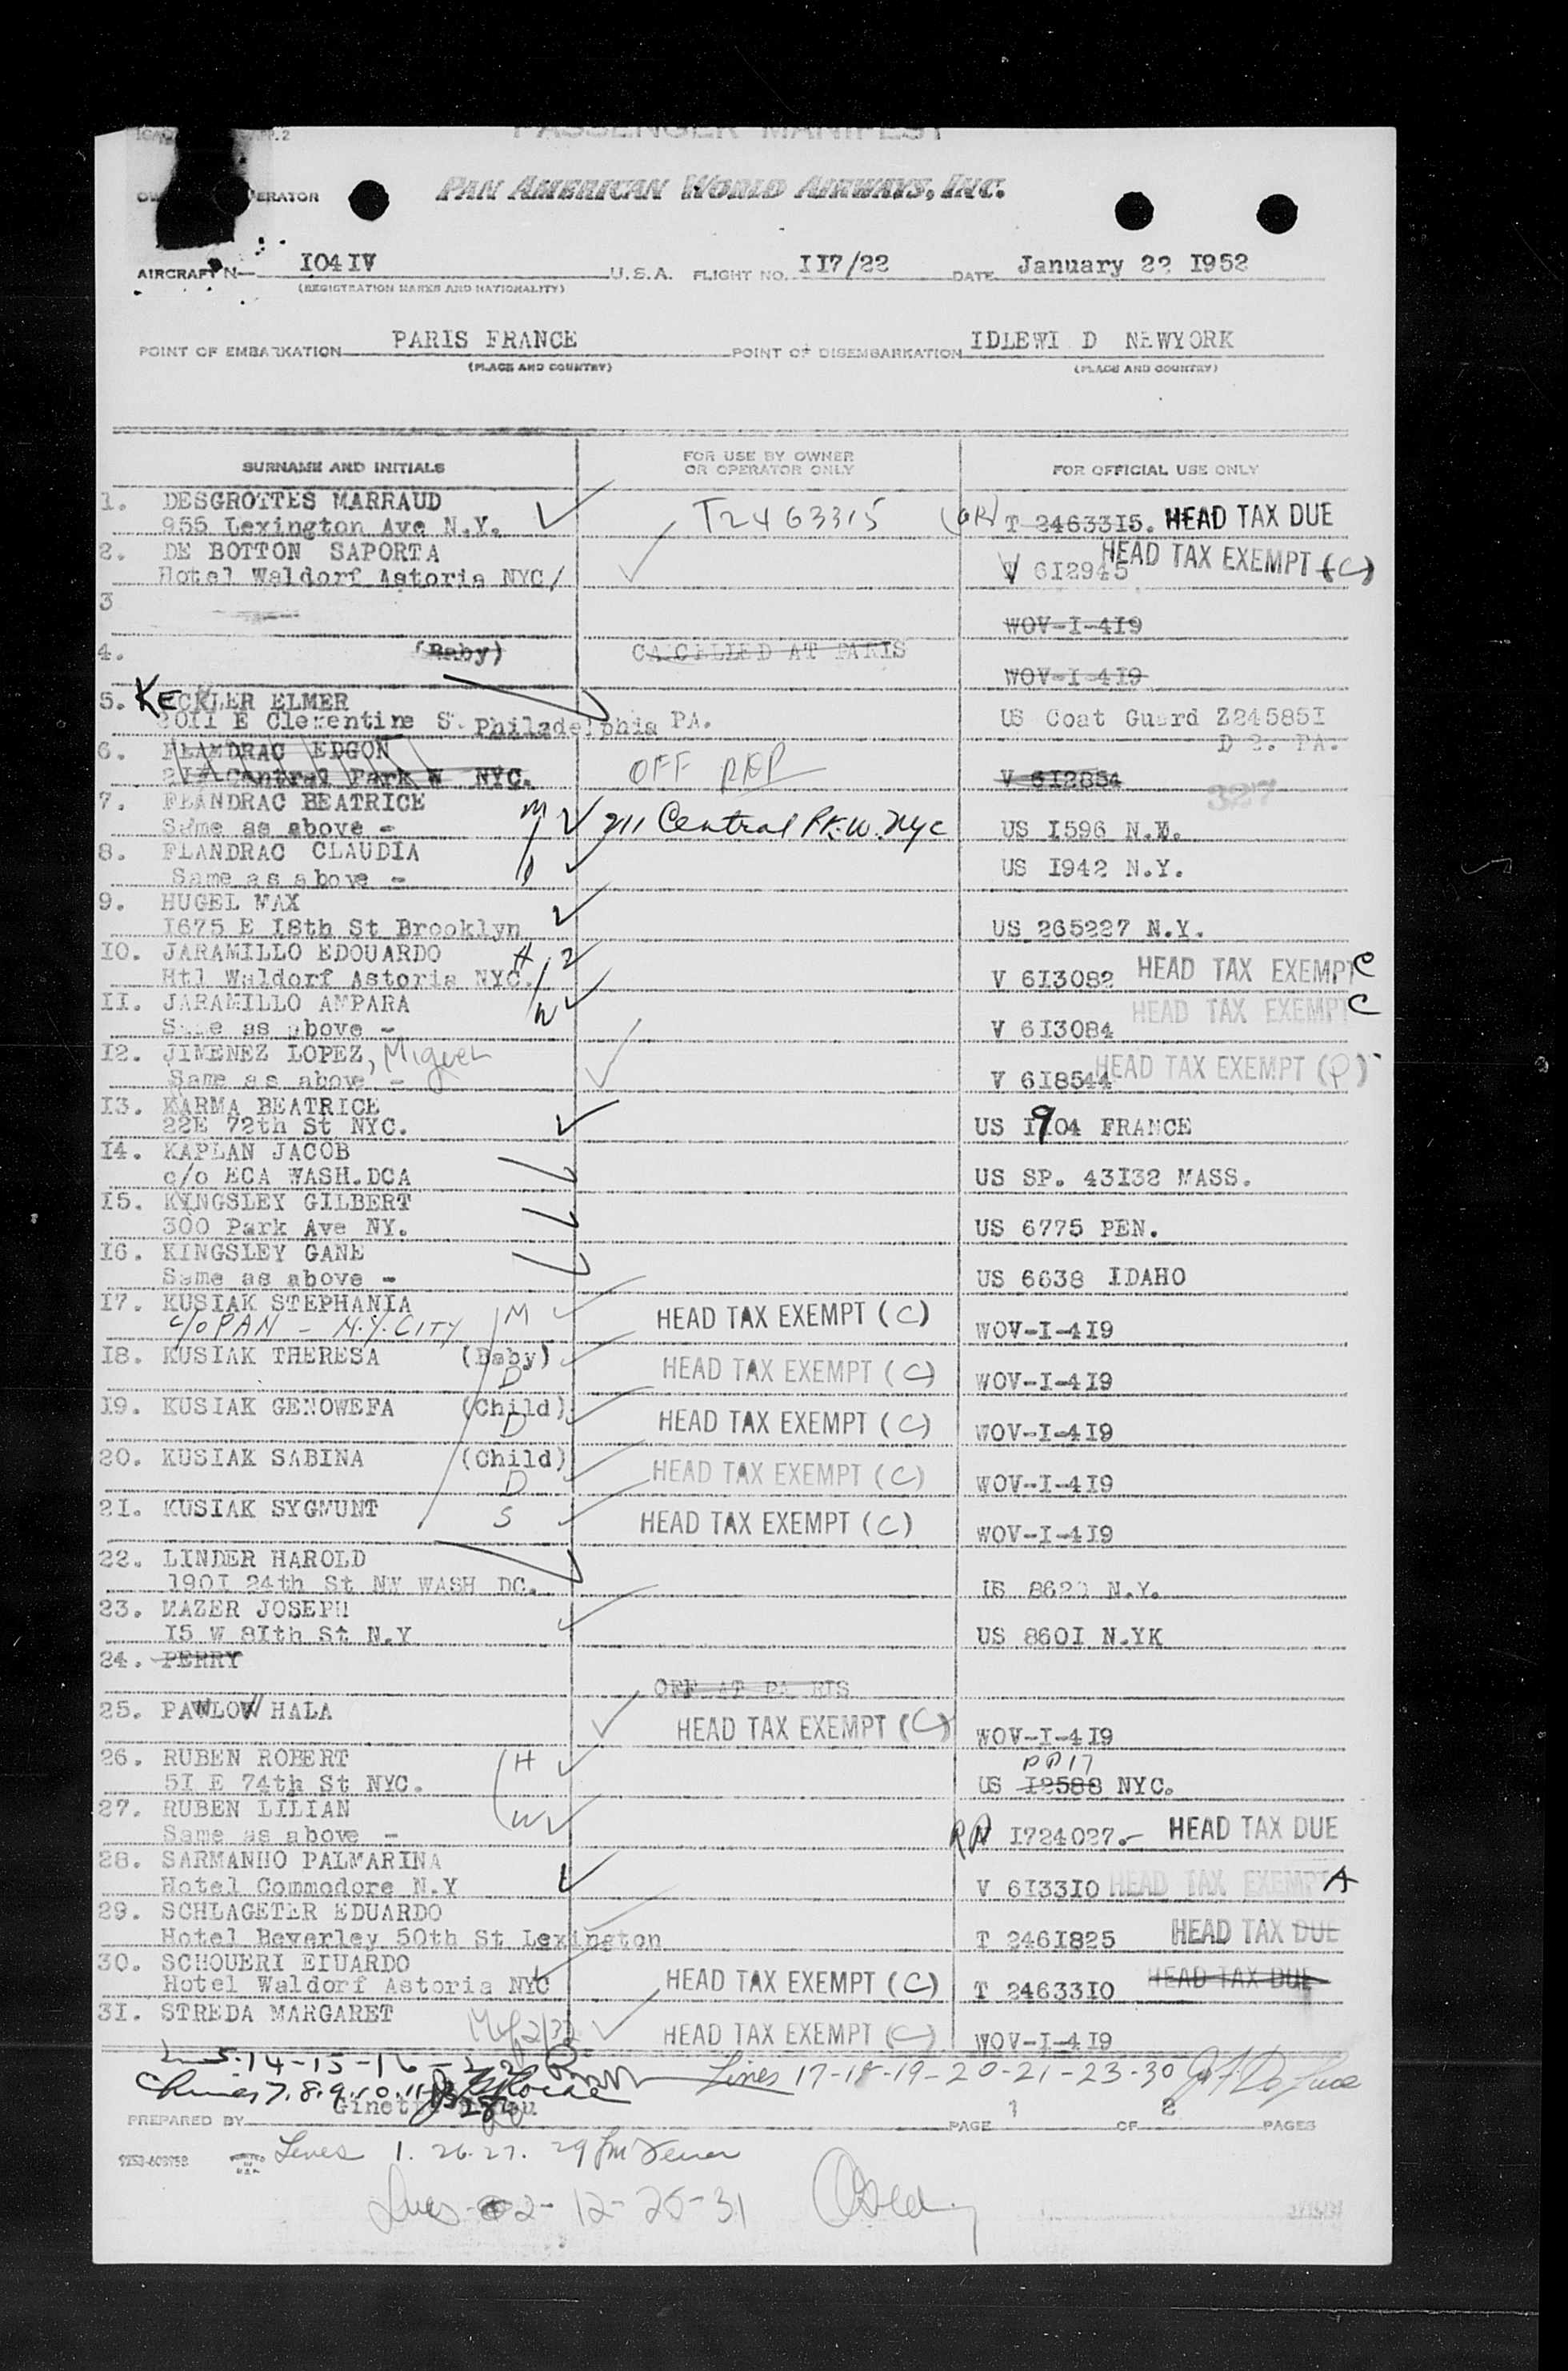 PASSENGER MANIFEST
PAN AMERICAN WORLD AIRWAYS, INC.
AIRCRAFT N— I04IV U.S.A. FLIGHT NO. II7/22 DATE January 22 I952
(REGISTRATION MARKS AND NATIONALITY)
POINT OF EMBARKATION PARIS FRANCE POINT OF DISEMBARKATION IDLEWI D NEWYORK
(PLACE AND COUNTRY) (PLACE AND COUNTRY)
SURNAME AND INITIALS FOR USE BY OWNER OR OPERATOR ONLY FOR OFFICIAL USE ONLY
1. DESGROTTES MARRAUD
955 Lexington Ave N.Y. T2463315 T 24633I5. HEAD TAX DUE
2. DE BOTTON SAPORTA HEAD TAX EXEMPT (C)
Hotel Waldorf Astoria NYC/ V 6I2945
3
WOV-I-4I9
4. (Baby) CANCELLED AT PARIS
WOV-I-4I9
5. KECKLER ELMER
20II E Clementine S. Philadelphia PA. US Coat Guard Z24585I
D 2. PA.
6. FLANDRAC EDGON
2II Central Park W NYC. OFF V 6I2854
327
7. FLANDRAC BEATRICE M
Same as above - 211 Central Pk. W. Nyc US I596 N.Y.
8. FLANDRAC CLAUDIA
Same as above - D US I942 N.Y.
9. HUGEL MAX
I675 E I8th St Brooklyn US 265227 N.Y.
IO. JARAMILLO EDOUARDO H
Htl Waldorf Astoria NYC. V 6I3082 HEAD TAX EXEMPT C
II. JARAMILLO AMPARA W HEAD TAX EXEMPT C
Same as above - V 6I3084
I2. JIMENEZ LOPEZ, Miguel HEAD TAX EXEMPT (P)
Same as above - V 6I8544
I3. KARMA BEATRICE
22E 72th St NYC. US I904 FRANCE
I4. KAPLAN JACOB
c/o ECA WASH.DCA US SP. 43I32 MASS.
I5. KINGSLEY GILBERT
300 Park Ave NY. US 6775 PEN.
I6. KINGSLEY GANE
Same as above - US 6638 IDAHO
I7. KUSIAK STEPHANIA M HEAD TAX EXEMPT (C)
c/o PAN - N.Y. CITY WOV-I-4I9
I8. KUSIAK THERESA (Baby) D HEAD TAX EXEMPT (C) WOV-I-4I9
I9. KUSIAK GENOWEFA (Child) D HEAD TAX EXEMPT (C) WOV-I-4I9
20. KUSIAK SABINA (Child) D HEAD TAX EXEMPT (C) WOV-I-4I9
2I. KUSIAK SYGMUNT S HEAD TAX EXEMPT (C) WOV-I-4I9
22. LINDER HAROLD
I90I 24th St NW WASH DC. US 8620 N.Y.
23. MAZER JOSEPH
I5 W 8Ith St N.Y US 860I N.YK
24. PERRY
OFF AT PA RIS
25. PAWLOW HALA HEAD TAX EXEMPT (C) WOV-I-4I9
26. RUBEN ROBERT H PP17
5I E 74th St NYC. US I2588 NYC.
27. RUBEN LILIAN W
Same as above - RP I724027.- HEAD TAX DUE
28. SARMANHO PALMARINA
Hotel Commodore N.Y V 6I33IO HEAD TAX EXEMPT A
29. SCHLAGETER EDUARDO
Hotel Beverley 50th St Lexington T 246I825 HEAD TAX DUE
30. SCHOUERI EDUARDO
Hotel Waldorf Astoria NYC HEAD TAX EXEMPT (C) T 24633IO HEAD TAX DUE
3I. STREDA MARGARET HEAD TAX EXEMPT (C) WOV-I-4I9
5-14-15-16-22
Lines 17-18-19-20-21-23-30
Lines 7.8.9.10.11
PREPARED BY Ginette PAGE 1 OF 2 PAGES
PRINTED IN U.S.A.
Lines 1. 26.27. 29
Lines 2-12-25-31